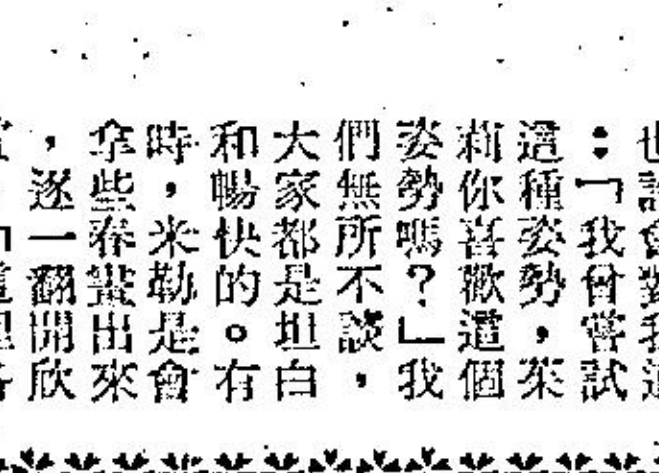 也會對我
：「我曾嘗試
這種姿勢，茱
莉你喜歡這個
姿勢嗎？」我
們無所不談，
大家都是坦白
和暢快的。有
時，米勒是會
拿些春畫出來
，逐一翻開欣